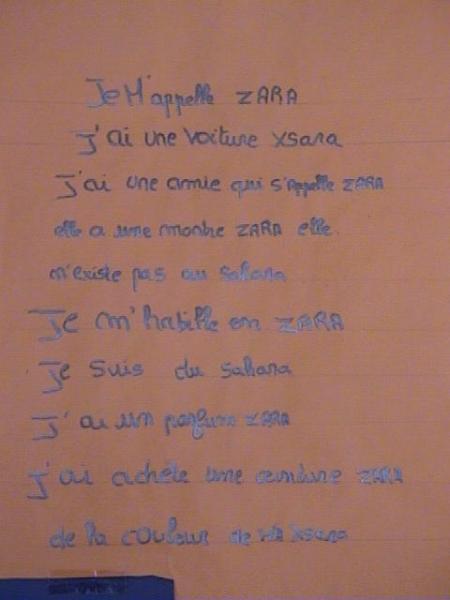 Je M'appelle ZARA
J'ai une voiture xsara
J'ai une amie qui s'Appelle ZARA
elle a une montre ZARA elle.
n'existe pas au sahara
Je m'habille en ZARA
Je suis du sahara
J'ai un parfum ZARA
J'ai achéte une ceinture ZARA
de la couleur de MA xsara